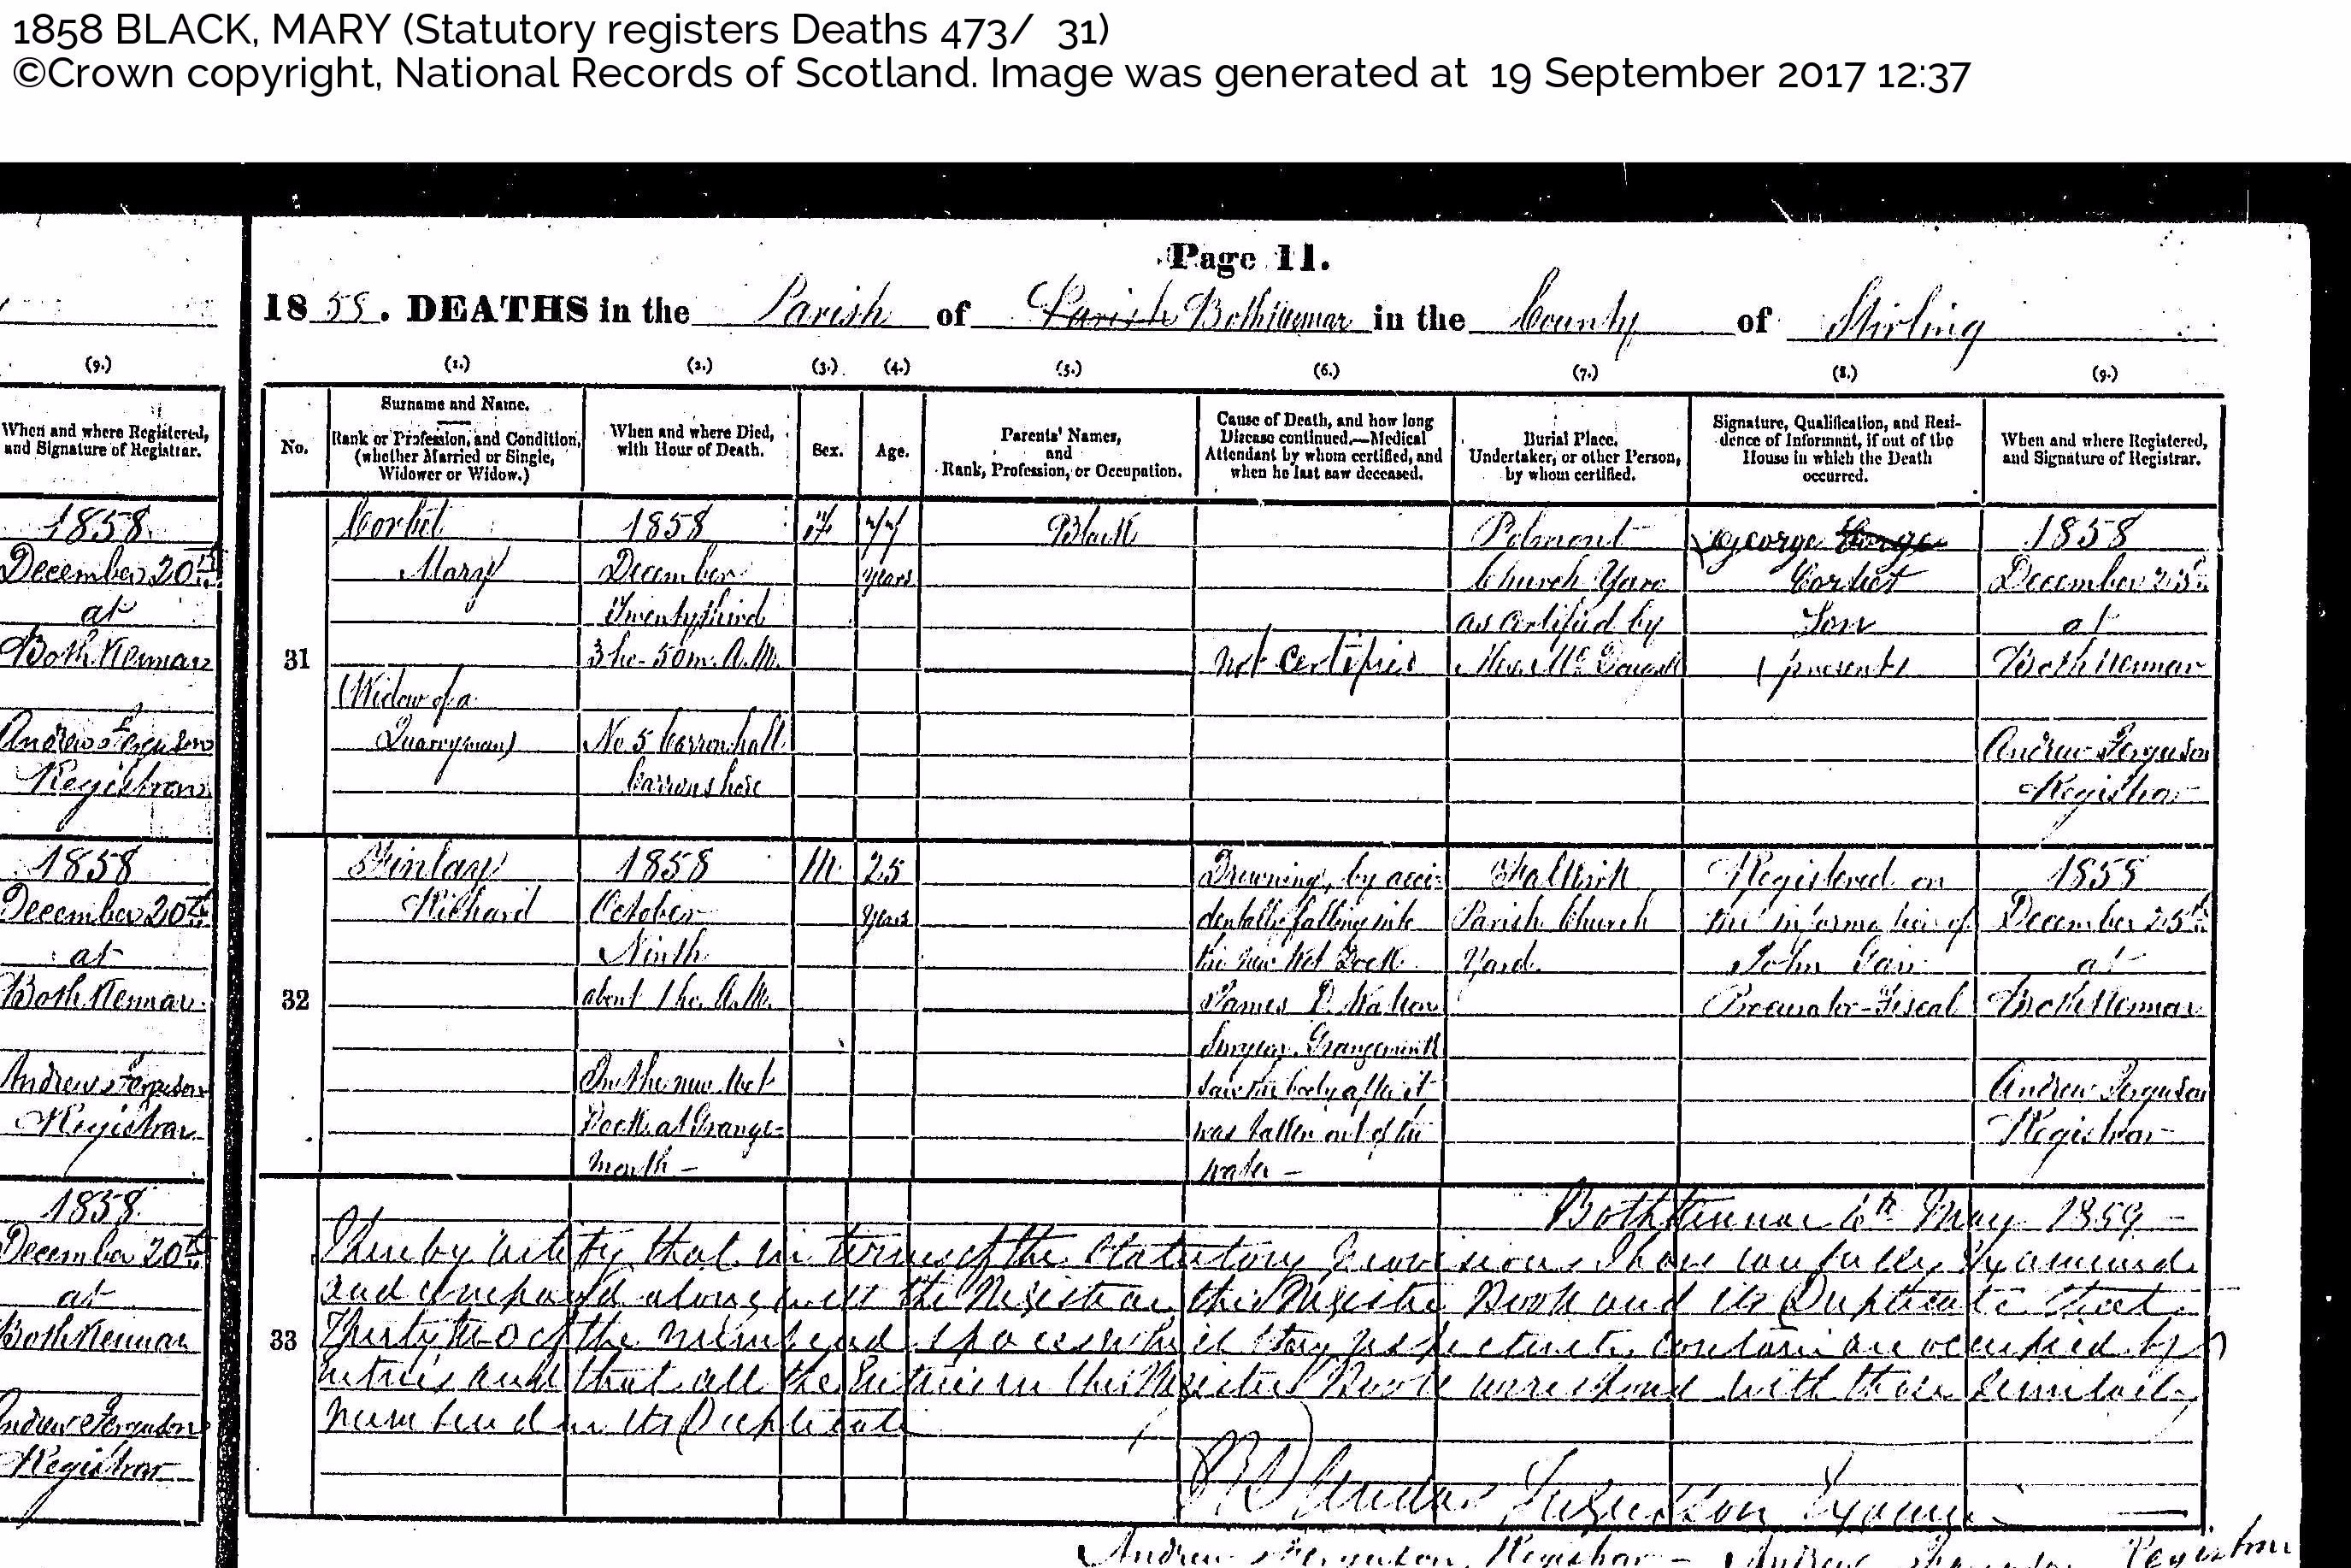 1858 BLACK, MARY (Statutory registers Deaths 473/ 31)
©Crown copyright, National Records of Scotland. Image was generated at 19 September 2017 12:37
Page 11.
1858. DEATHS in the Parish of Parish Bothkennar in the County of Stirling
(9.)
When and where Registered,
and Signature of Registrar.
1858
December 20th
at
Bothkennar
Andrew Ferguson
Registrar
1858
December 20th
at
Bothkennar
Andrew Ferguson
Registrar
1858
December 20th
at
Bothkennar
Andrew Ferguson
Registrar
(1.) (2.) (3.) (4.) (5.) (6.) (7.) (8.) (9.)
No.
Surname and Name.
Rank or Profession, and Condition,
(whether Married or Single,
Widower or Widow.)
When and where Died,
with Hour of Death.
Sex.
Age.
Parents' Names,
and
Rank, Profession, or Occupation.
Cause of Death, and how long
Disease continued.—Medical
Attendant by whom certified, and
when he last saw deceased.
Burial Place.
Undertaker, or other Person,
by whom certified.
Signature, Qualification, and Resi-
dence of Informant, if out of the
House in which the Death
occurred.
When and where Registered,
and Signature of Registrar.
31
Corbet
Mary
(Widow of a
Quarryman)
1858
December
Twenty third
3 ho. 50 m. A.M.
No 5 Carronhall
Carronshore
F
77
years
Black
Not Certified
Polmont
Church Yard
as certified by
McDougall
George
Corbet
Son
(present)
1858
December 25th
at
Bothkennar
Andrew Ferguson
Registrar
32
Finlay
Richard
1858
October
Ninth
about 1 ho. A.M.
In the new Wet
Dock at Grange-
mouth -
M.
25
years
Drowning, by acci-
dentally falling into
the new Wet Dock
James D.
Surgeon, Grangemouth
saw the body after it
was taken out of the
water -
Falkirk
Parish Church
Yard.
Registered on
the information of
John
Procurator-Fiscal
1858
December 25th
at
Bothkennar
Andrew Ferguson
Registrar
33
Bothkennar 6th May 1859 -
I hereby certify that in terms of the Statutory Provisions I have carefully Examined
and compared along with the Registrar this Register Book and its Duplicate that
Thirty two of the numbered spaces which they respectively contain are occupied by
entries and that all the Entries in this Register Book correspond with those similarly
numbered in its Duplicate
Ferguson Examiner
Andrew Ferguson, Registrar - Andrew Ferguson Registrar